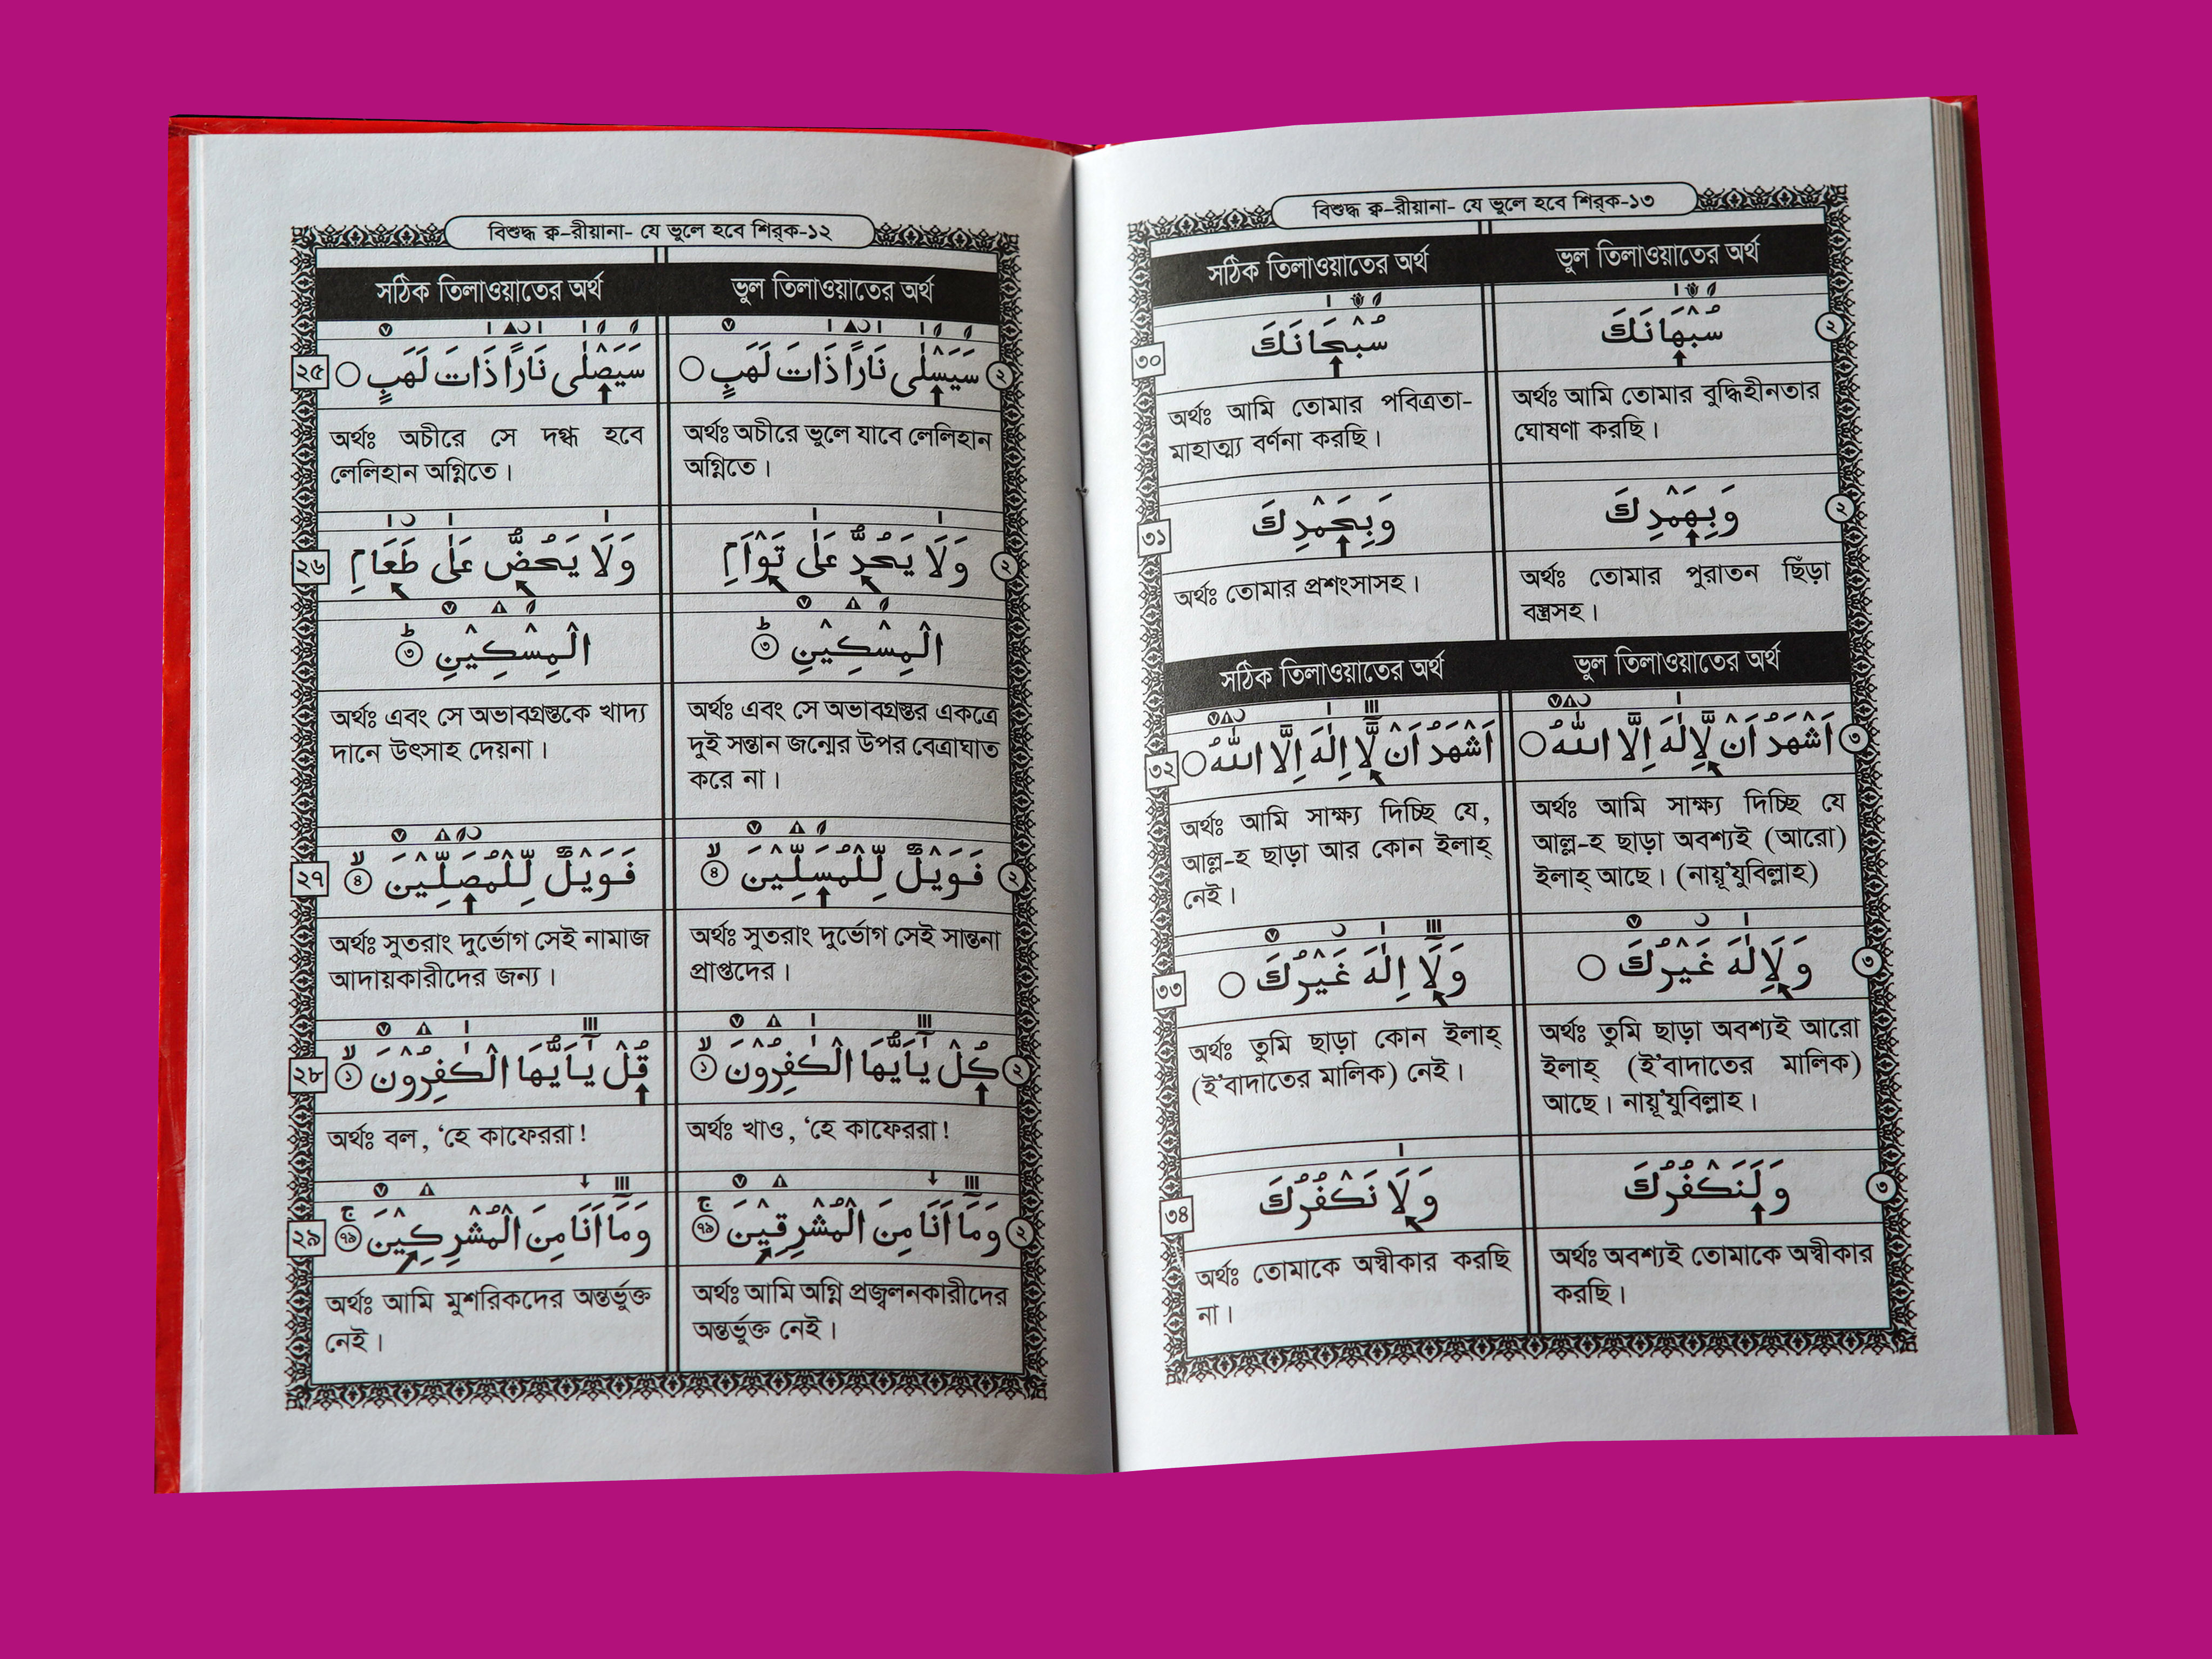 বিশুদ্ধ ক্ব-রীয়ানা- যে ভুলে হবে শির্‌ক-১২
সঠিক তিলাওয়াতের অর্থ
ভুল তিলাওয়াতের অর্থ
২৫
سَيَصْلٰى نَارًا ذَاتَ لَهَبٍ
سَيَسْلٰى نَارًا ذَاتَ لَهَبٍ
২
অর্থঃ অচীরে সে দগ্ধ হবে
লেলিহান অগ্নিতে।
অর্থঃ অচীরে ভুলে যাবে লেলিহান
অগ্নিতে।
২৬
وَلَا يَحُضُّ عَلٰى طَعَامِ
الْمِسْكِيْنِ ৩
وَلَا يَحُدُّ عَلٰى تَوْاَمِ
الْمِسْكِيْنِ ৩
২
অর্থঃ এবং সে অভাবগ্রস্তকে খাদ্য
দানে উৎসাহ দেয়না।
অর্থঃ এবং সে অভাবগ্রস্তর একত্রে
দুই সন্তান জন্মের উপর বেত্রাঘাত
করে না।
২৭
فَوَيْلٌ لِّلْمُصَلِّيْنَ ৪
فَوَيْلٌ لِّلْمُسَلِّيْنَ ৪
২
অর্থঃ সুতরাং দুর্ভোগ সেই নামাজ
আদায়কারীদের জন্য।
অর্থঃ সুতরাং দুর্ভোগ সেই সান্তনা
প্রাপ্তদের।
২৮
قُلْ يٰٓاَيُّهَا الْكٰفِرُوْنَ ১
كُلْ يٰٓاَيُّهَا الْكٰفِرُوْنَ ১
২
অর্থঃ বল, ‘হে কাফেররা!
অর্থঃ খাও, ‘হে কাফেররা!
২৯
وَمَآ اَنَا مِنَ الْمُشْرِكِيْنَ ৭৯
وَمَآ اَنَا مِنَ الْمُشْرِقِيْنَ ৭৯
২
অর্থঃ আমি মুশরিকদের অন্তর্ভুক্ত
নেই।
অর্থঃ আমি অগ্নি প্রজ্বলনকারীদের
অন্তর্ভুক্ত নেই।
বিশুদ্ধ ক্ব-রীয়ানা- যে ভুলে হবে শির্‌ক-১৩
সঠিক তিলাওয়াতের অর্থ
ভুল তিলাওয়াতের অর্থ
৩০
سُبْحَانَكَ
سُبْهَانَكَ
২
অর্থঃ আমি তোমার পবিত্রতা-
মাহাত্ম্য বর্ণনা করছি।
অর্থঃ আমি তোমার বুদ্ধিহীনতার
ঘোষণা করছি।
৩১
وَبِحَمْدِكَ
وَبِهَمْدِكَ
২
অর্থঃ তোমার প্রশংসাসহ।
অর্থঃ তোমার পুরাতন ছিঁড়া
বস্ত্রসহ।
সঠিক তিলাওয়াতের অর্থ
ভুল তিলাওয়াতের অর্থ
৩২
اَشْهَدُ اَنْ لَّآ اِلٰهَ اِلَّا اللّٰهُ
اَشْهَدُ اَنْ لَّاِلٰهَ اِلَّا اللّٰهُ
৩
অর্থঃ আমি সাক্ষ্য দিচ্ছি যে,
আল্ল-হ ছাড়া আর কোন ইলাহ্
নেই।
অর্থঃ আমি সাক্ষ্য দিচ্ছি যে
আল্ল-হ ছাড়া অবশ্যই (আরো)
ইলাহ্ আছে। (নায়ূ’যুবিল্লাহ)
৩৩
وَلَآ اِلٰهَ غَيْرُكَ
وَلَاِلٰهَ غَيْرُكَ
৩
অর্থঃ তুমি ছাড়া কোন ইলাহ্
(ই’বাদাতের মালিক) নেই।
অর্থঃ তুমি ছাড়া অবশ্যই আরো
ইলাহ্ (ই’বাদাতের মালিক)
আছে। নায়ূ’যুবিল্লাহ।
৩৪
وَلَا نَكْفُرُكَ
وَلَنَكْفُرُكَ
৩
অর্থঃ তোমাকে অস্বীকার করছি
না।
অর্থঃ অবশ্যই তোমাকে অস্বীকার
করছি।